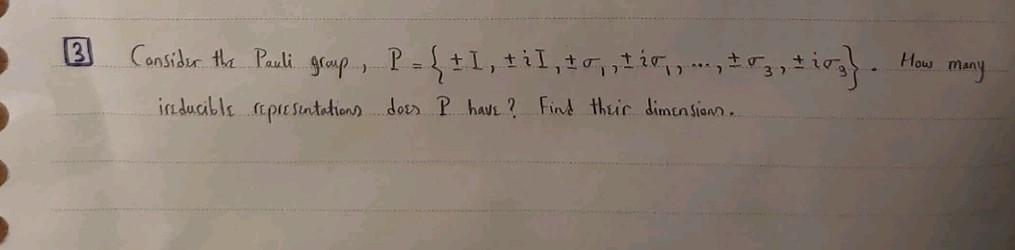 3 Consider the Pauli group, P = { ± I, ± i I, ± σ₁, ± i σ₁, ..., ± σ₃, ± i σ₃ }. How many
irreducible representations does P have? Find their dimensions.